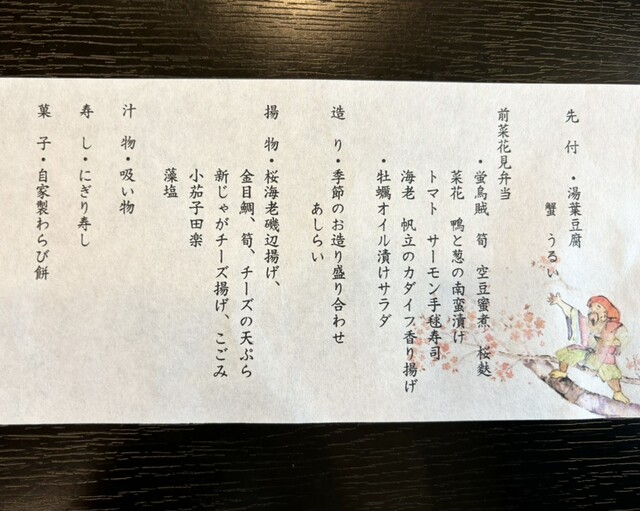 先付・湯葉豆腐
蟹 うるい
前菜花見弁当
・蛍烏賊 筍 空豆蜜煮 桜麩
菜花 鴨と葱の南蛮漬け
トマト サーモン手毬寿司
海老 帆立のカダイフ香り揚げ
・牡蠣オイル漬けサラダ
造り・季節のお造り盛り合わせ
あしらい
揚物・桜海老磯辺揚げ、
金目鯛、筍、チーズの天ぷら
新じゃがチーズ揚げ、こごみ
小茄子田楽
藻塩
汁物・吸い物
寿し・にぎり寿し
菓子・自家製わらび餅